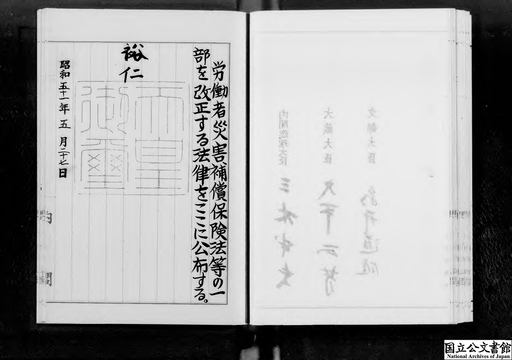 労働者災害補償保険法等の一
部を改正する法律をここに公布する。
裕仁
昭和五十一年五月二十七日
天皇
御璽
内閣
文部大臣
大蔵大臣
内閣総理大臣
国立公文書館
National Archives of Japan